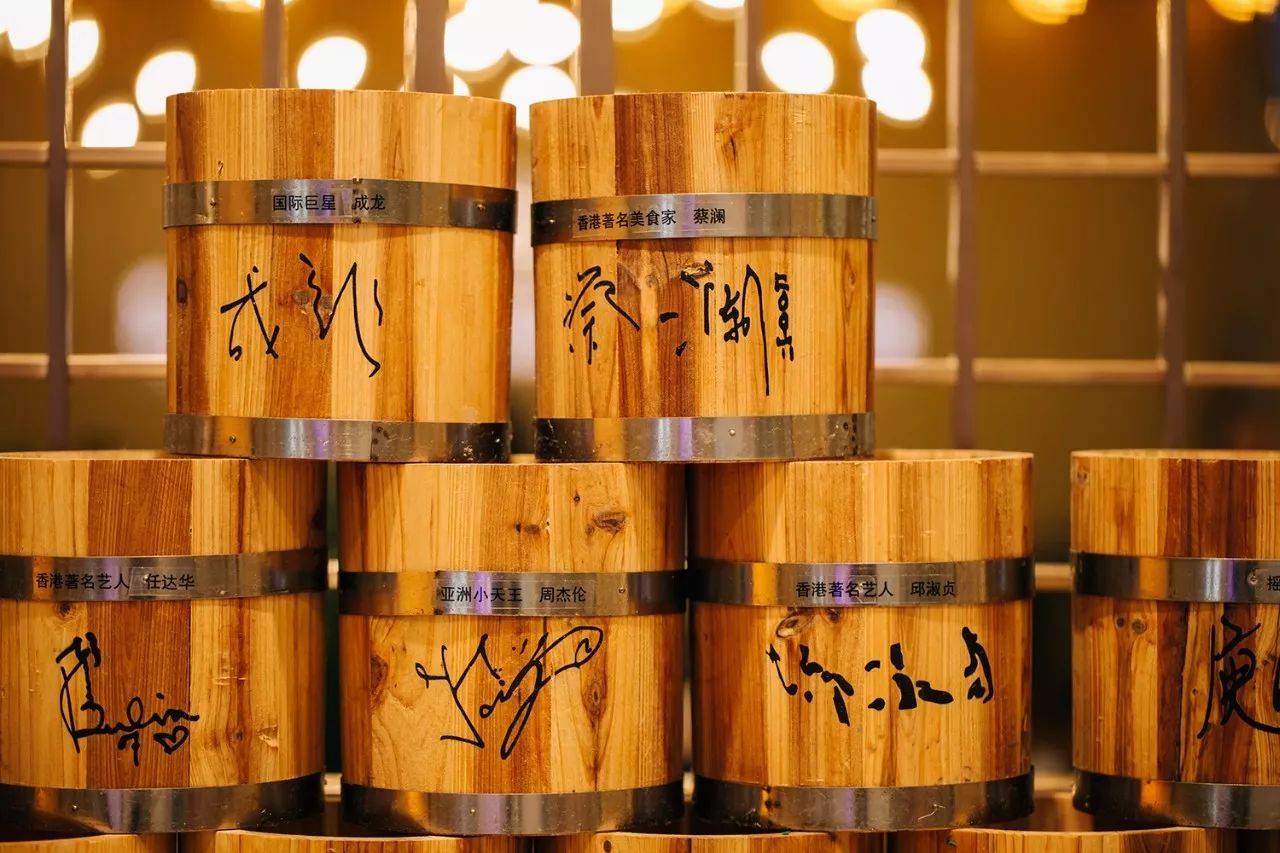 国际巨星 成龙
成龙
香港著名美食家 蔡澜
蔡澜
香港著名艺人 任达华
亚洲小天王 周杰伦
Jay
香港著名艺人 邱淑贞
摇
庾